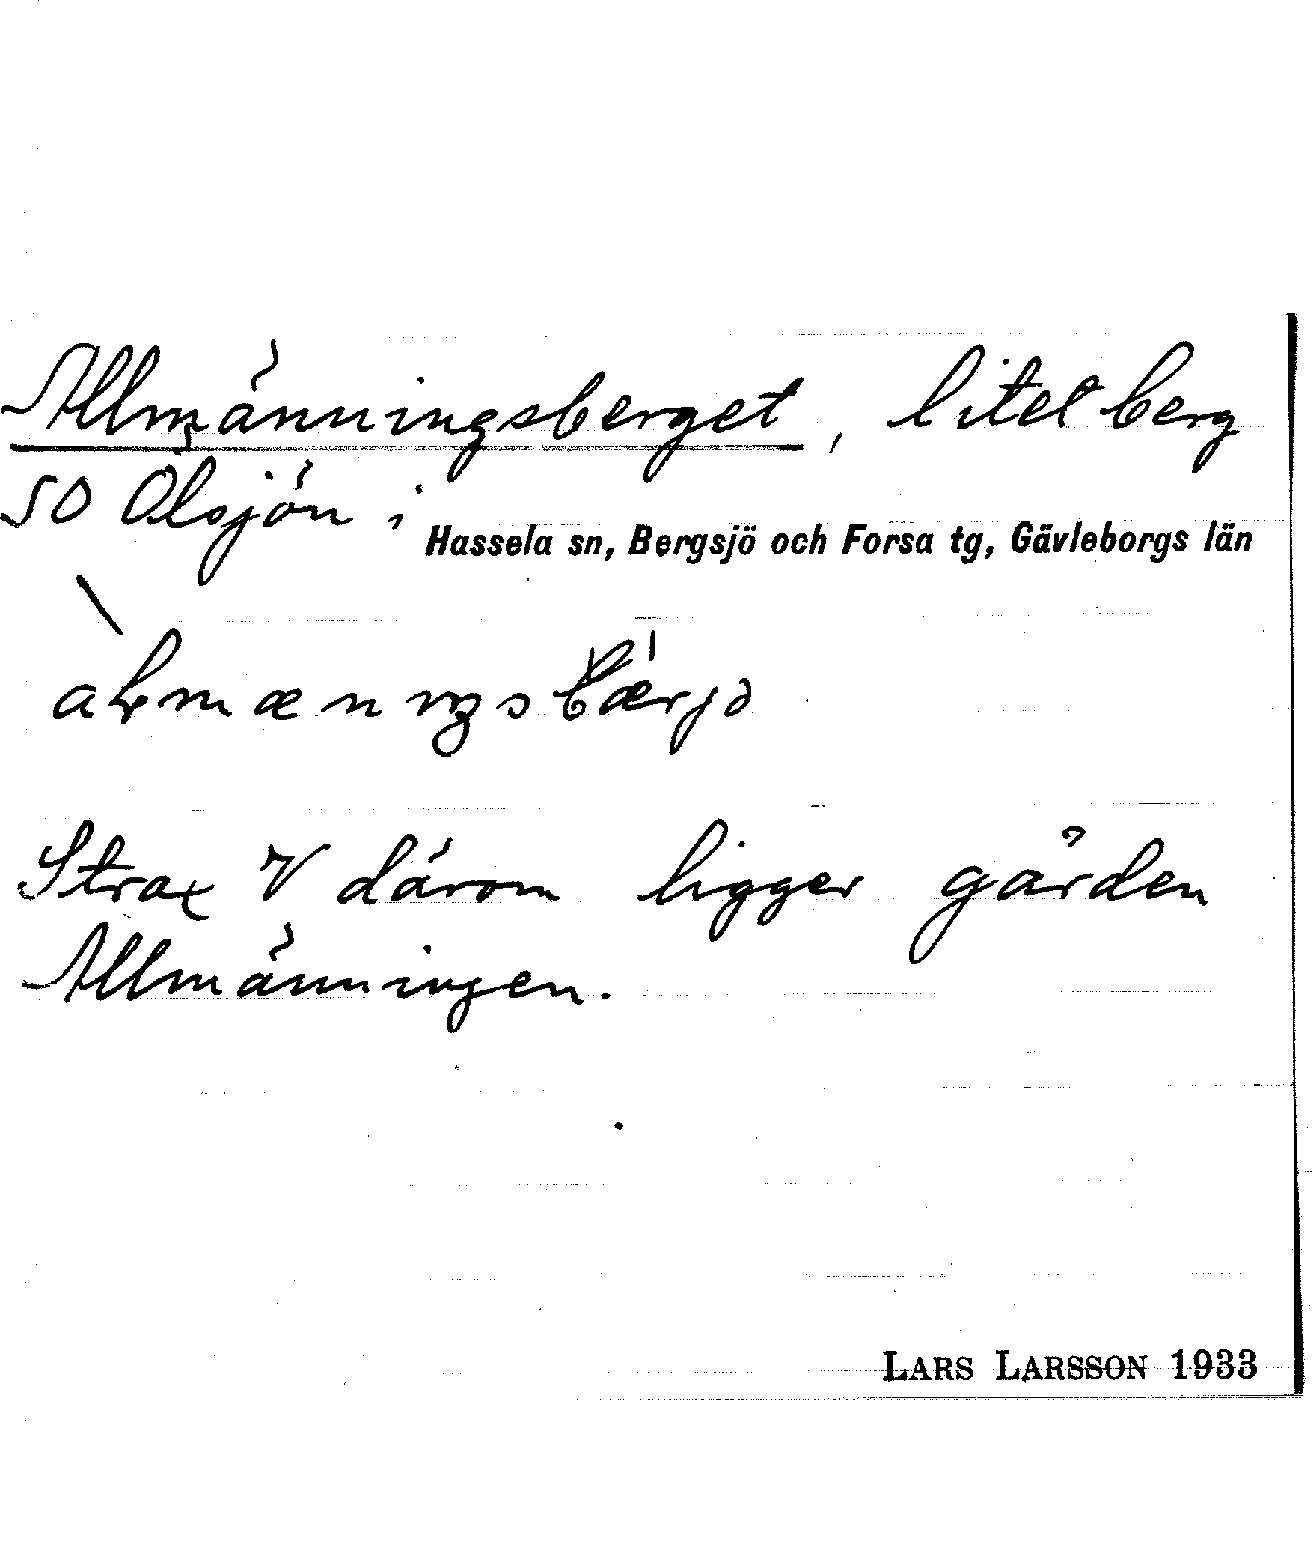 Allmänningsberget, litet berg
SO Olsjön i
Hassela sn, Bergsjö och Forsa tg, Gävleborgs län
Strax V därom ligger gården
Allmänningen.
LARS LARSSON 1933